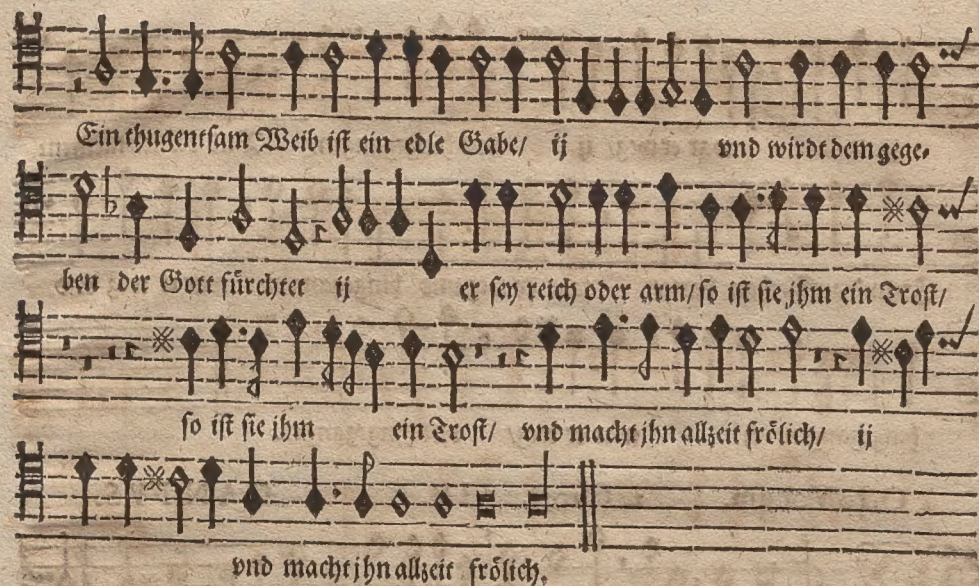 Ein thugentsam Weib ist ein edle Gabe/ ij vnd wirdt dem gege-
ben der Gott fürchtet ij er sey reich oder arm/ so ist sie jhm ein Trost/
so ist sie jhm ein Trost/ vnd macht jhn allzeit frölich/ ij
vnd macht jhn allzeit frölich.